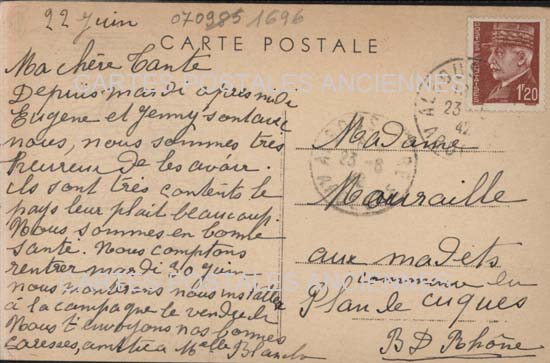 22 Juin
0709851696
CARTE POSTALE
Ma chère Tante
Depuis mardi après midi
Eugène et Jenny sont avec
nous, nous sommes très
heureux de les avoir.
ils sont très contents le
pays leur plait beaucoup.
Nous sommes en bonne
santé. Nous comptons
rentrer mardi 30 juin
nous montons nous installer
à la campagne le vendredi
Nous t'envoyons nos bonnes
caresses, amitié à Melle
Madame
Mouraille
aux
commune de
Plan de Cuques
BD Rhône
1F20
23
42
23 -6
CARTES POSTALES ANCIENNES
CARTES POSTALES ANCIENNES